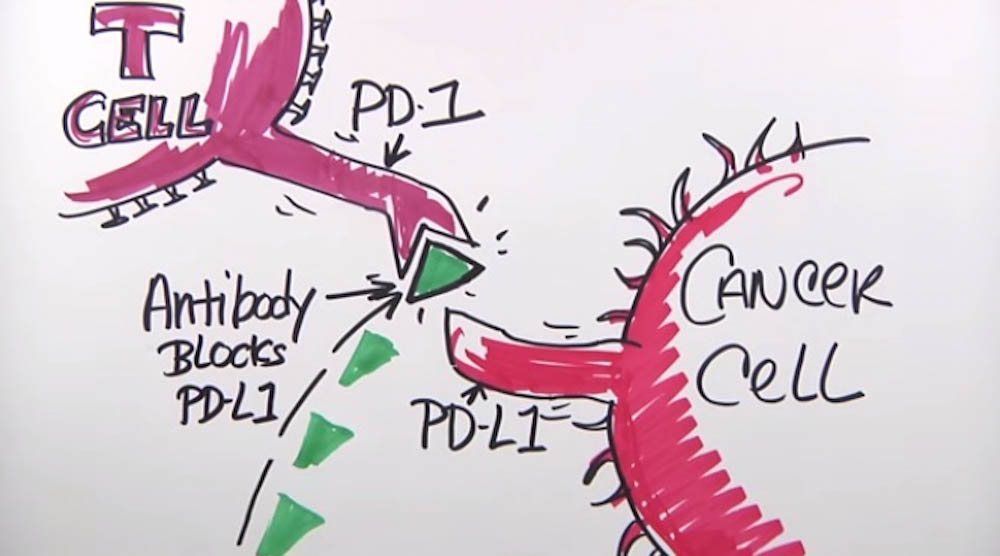 T
CELL
PD-1
Antibody
BLOCKS
PD-L1
PD-L1
CANCER
CELL